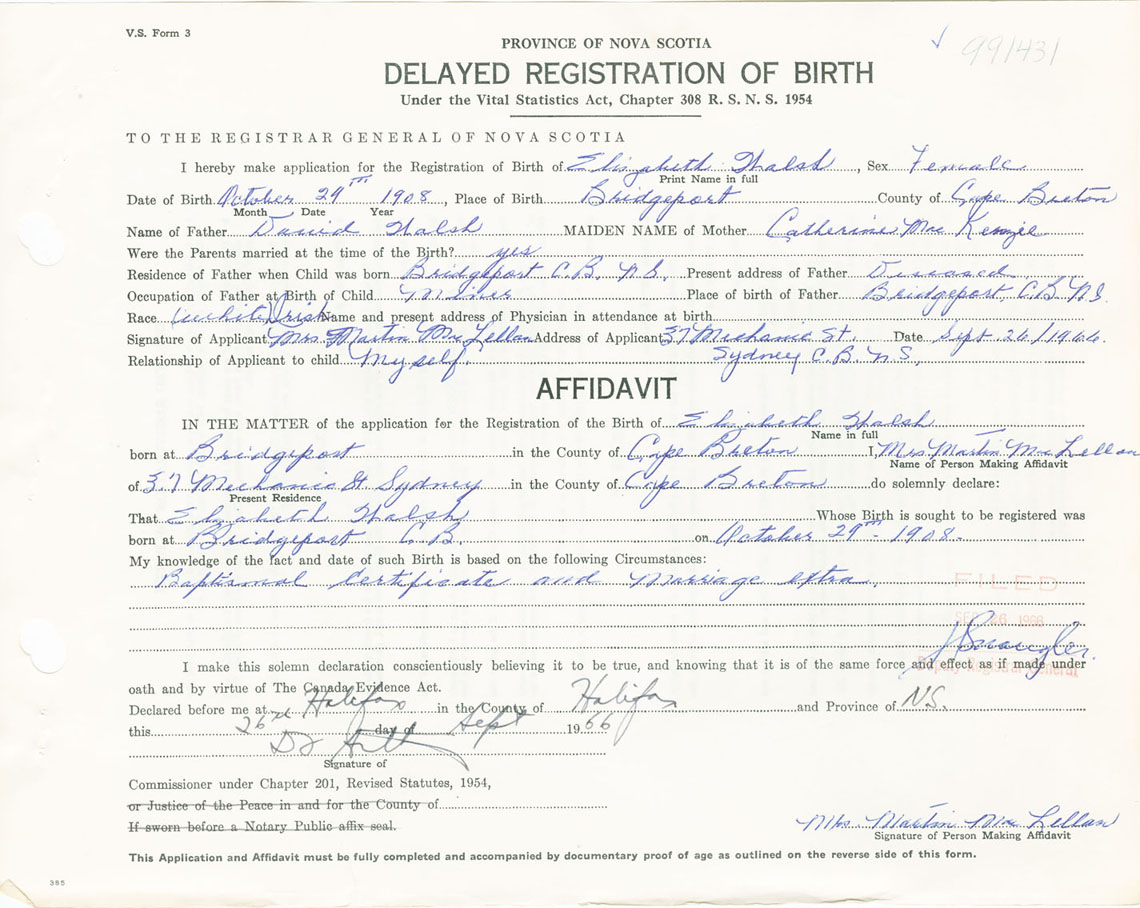 V.S. Form 3
991431
PROVINCE OF NOVA SCOTIA
DELAYED REGISTRATION OF BIRTH
Under the Vital Statistics Act, Chapter 308 R. S. N. S. 1954
TO THE REGISTRAR GENERAL OF NOVA SCOTIA
I hereby make application for the Registration of Birth of Elizabeth Walsh, Sex Female
Print Name in full
Date of Birth October 29th 1908, Place of Birth Bridgeport County of Cape Breton
Month Date Year
Name of Father David Walsh MAIDEN NAME of Mother Catherine Mac Kenzie
Were the Parents married at the time of the Birth? yes
Residence of Father when Child was born Bridgeport C.B. N.S. Present address of Father Diseased
Occupation of Father at Birth of Child Miner Place of birth of Father Bridgeport C.B. N.S.
Race (white) Irish Name and present address of Physician in attendance at birth
Signature of Applicant Mrs Martin Mac Lellan Address of Applicant 37 Mechanic St. Date Sept 26/1966
Relationship of Applicant to child Myself. Sydney C.B. N.S.
AFFIDAVIT
IN THE MATTER of the application for the Registration of the Birth of Elizabeth Walsh
Name in full
born at Bridgeport in the County of Cape Breton I, Mrs Martin Mac Lellan
Name of Person Making Affidavit
of 37 Mechanic St Sydney in the County of Cape Breton do solemnly declare:
Present Residence
That Elizabeth Walsh Whose Birth is sought to be registered was
born at Bridgeport C.B. on October 29th - 1908.
My knowledge of the fact and date of such Birth is based on the following Circumstances:
Baptismal Certificate and Marriage extra.
FILED
SEP 26 1966
Deputy Registrar General
I make this solemn declaration conscientiously believing it to be true, and knowing that it is of the same force and effect as if made under
oath and by virtue of The Canada Evidence Act.
Declared before me at Halifax in the County of Halifax and Province of N.S.
this 26th day of Sept 1966
Signature of
Commissioner under Chapter 201, Revised Statutes, 1954,
or Justice of the Peace in and for the County of
If sworn before a Notary Public affix seal.
Mrs Martin Mac Lellan
Signature of Person Making Affidavit
This Application and Affidavit must be fully completed and accompanied by documentary proof of age as outlined on the reverse side of this form.
385